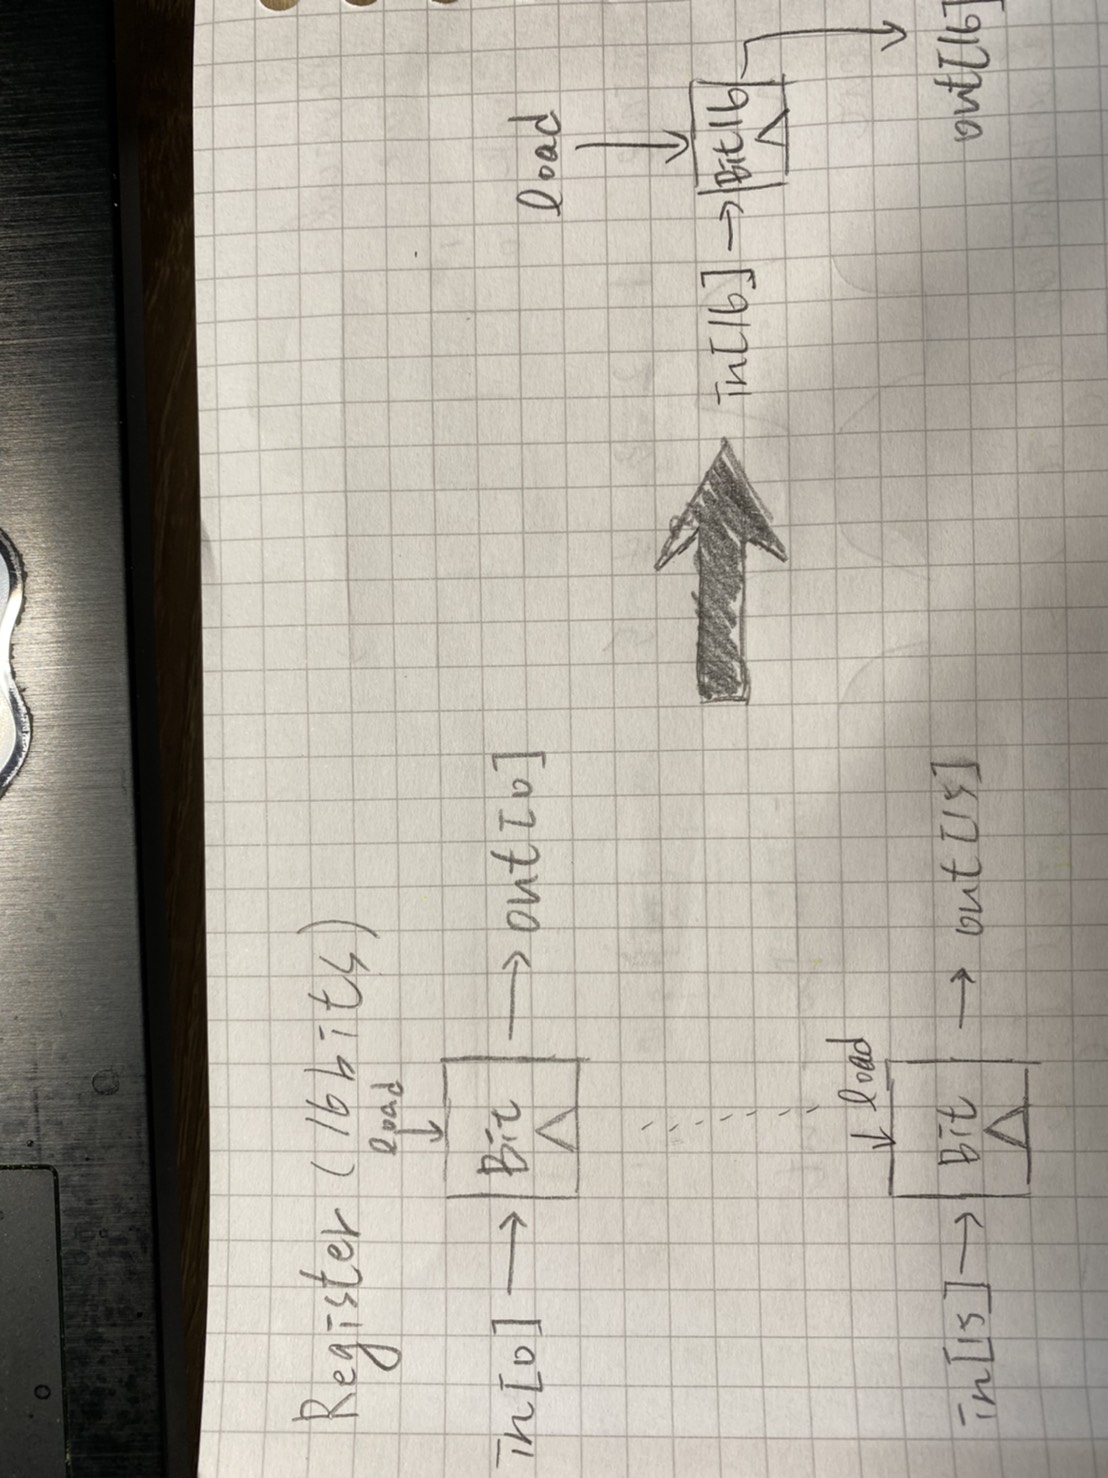 Register (16bits)
load
in[0] → Bit → out[0]
load
in[15] → Bit → out[15]
load
in[16] → Bit16
out[16]